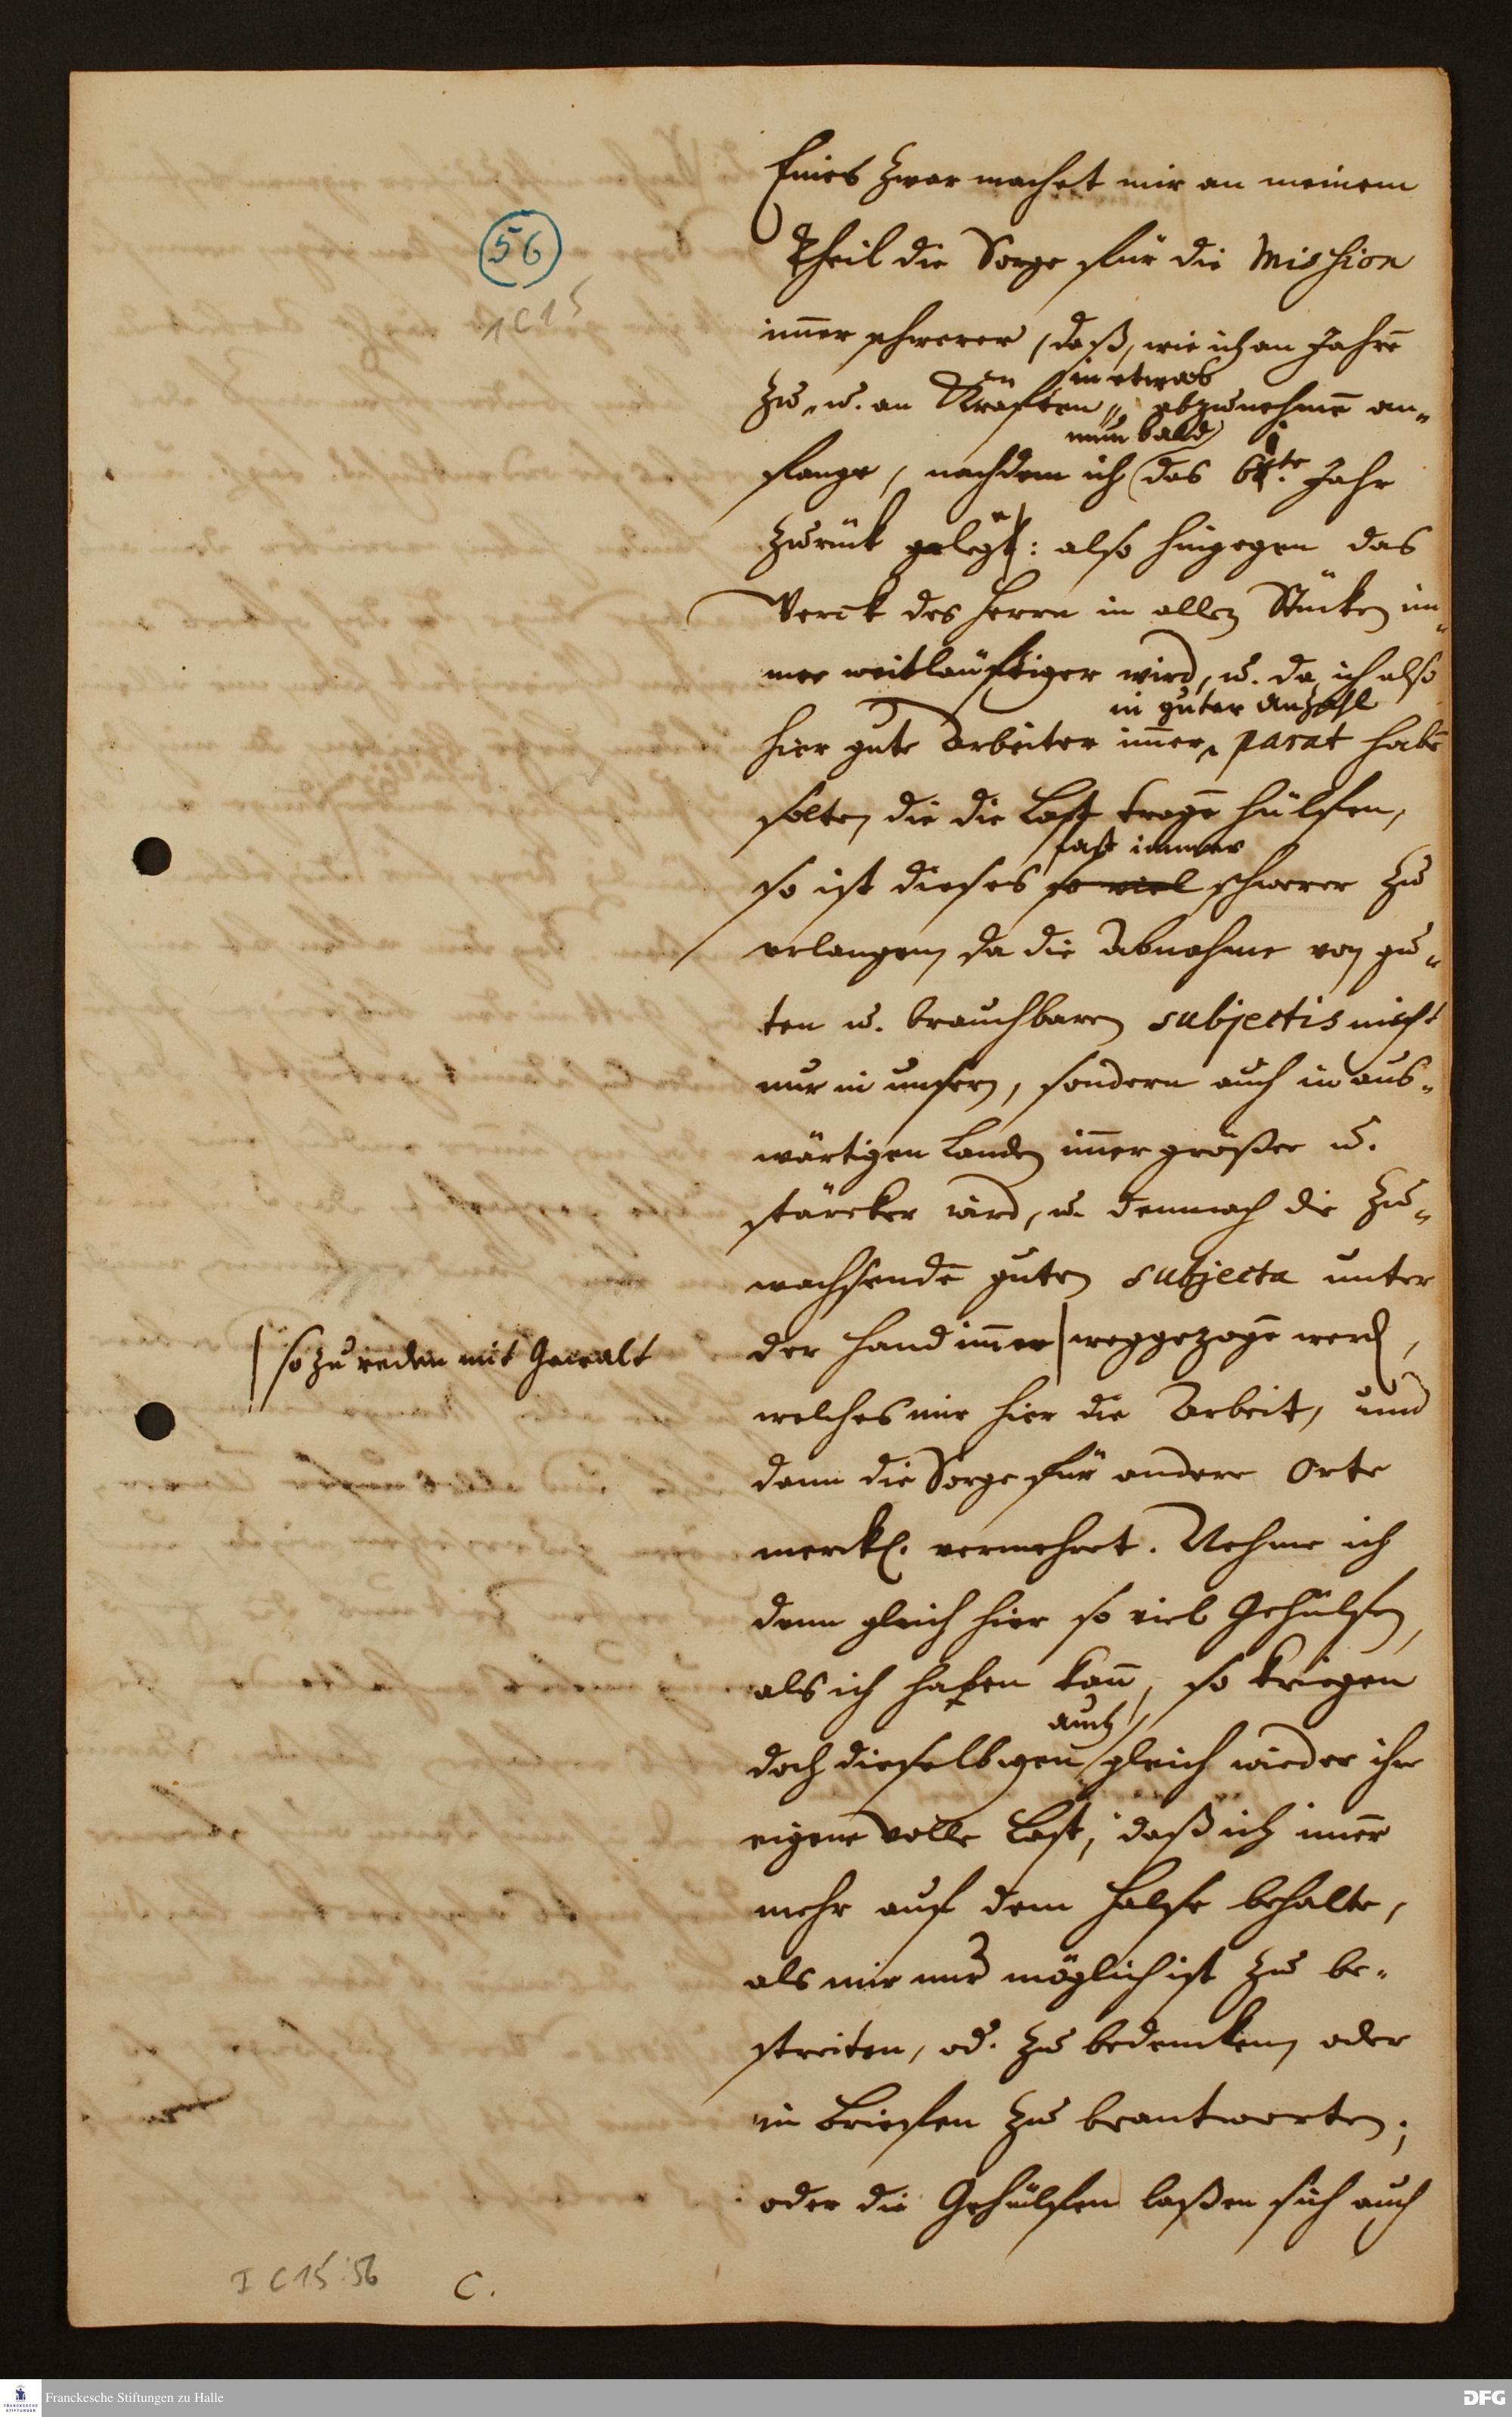 56
1 C 15
Eines zwar machet mir an meinem
Theil die Sorge für die Mission
im̄er schwerer, daß, wie ich an Jahrē
zu, u. an Kräften in etwas abzunehmē an„
fange, nachdem ich nun bald das 61.te Jahr
zurück gelegt: also hingegen das
Werck des Herrn in allen Stücken im„
mer weitläuftiger wird, u. da ich also
hier gute Arbeiter im̄er in guter Anzahl parat habē
solte, die die Last tragē hülfen,
so ist dieses so viel fast immer schwerer zu
erlangen, da die Abnahme von gu„
ten u. brauchbaren subjectis nicht
nur in unsern, sondern auch in aus„
wärtigen Landen im̄er größer u.
stärcker wird, u. demnach die zu„
wachsende guten subjecta unter
der Hand im̄er | weggezogē werd,
| so zu reden mit Gewalt
welches mir hier die Arbeit, und
dann die Sorge für andere Orte
merckl. vermehret. Nehme ich
denn gleich hier so viel Gehülfen,
als ich haben kan̄, so kriegen
doch dieselbigen auch gleich wieder ihre
eigene volle Last, daß ich im̄er
mehr auf dem Halse behalte,
als mir nur möglich ist zu be„
streiten, od. zu bedencken, oder
in Briefen zu beantworten;
oder die Gehülfen laßen sich auch
I C 15:56
C.
Franckesche Stiftungen zu Halle
DFG